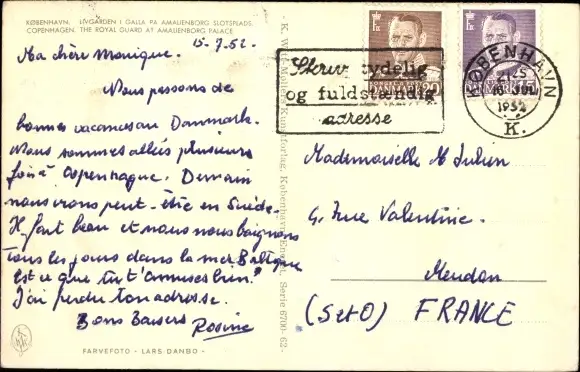 KØBENHAVN. LIVGARDEN I GALLA PA AMALIENBORG SLOTSPLADS.
COPENHAGEN. THE ROYAL GUARD AT AMALIENBORG PALACE
15-7.52.
Ma chère Monique.
Nous passons de
bonnes vacances au Danmark.
Nous sommes allées plusieurs
fois à Copenhague. Demain
nous irons peut-être en Suède.
Il fait beau et nous nous baignons
tous les jours dans la mer Baltique
Est ce que tu t'amuses bien?
J'ai perdu ton adresse.
Bons Baisers
Rosine
FARVEFOTO - LARS DANBO -
Kunstforlag, København
Serie 6700-62-
Skriv tydelig
Og fuldstændig
adresse
DANMARK 20
DANMARK 15
KØBENHAVN
1952
K.
Mademoiselle M Julien
4, rue Valentine.
Meudon
(S et O) FRANCE